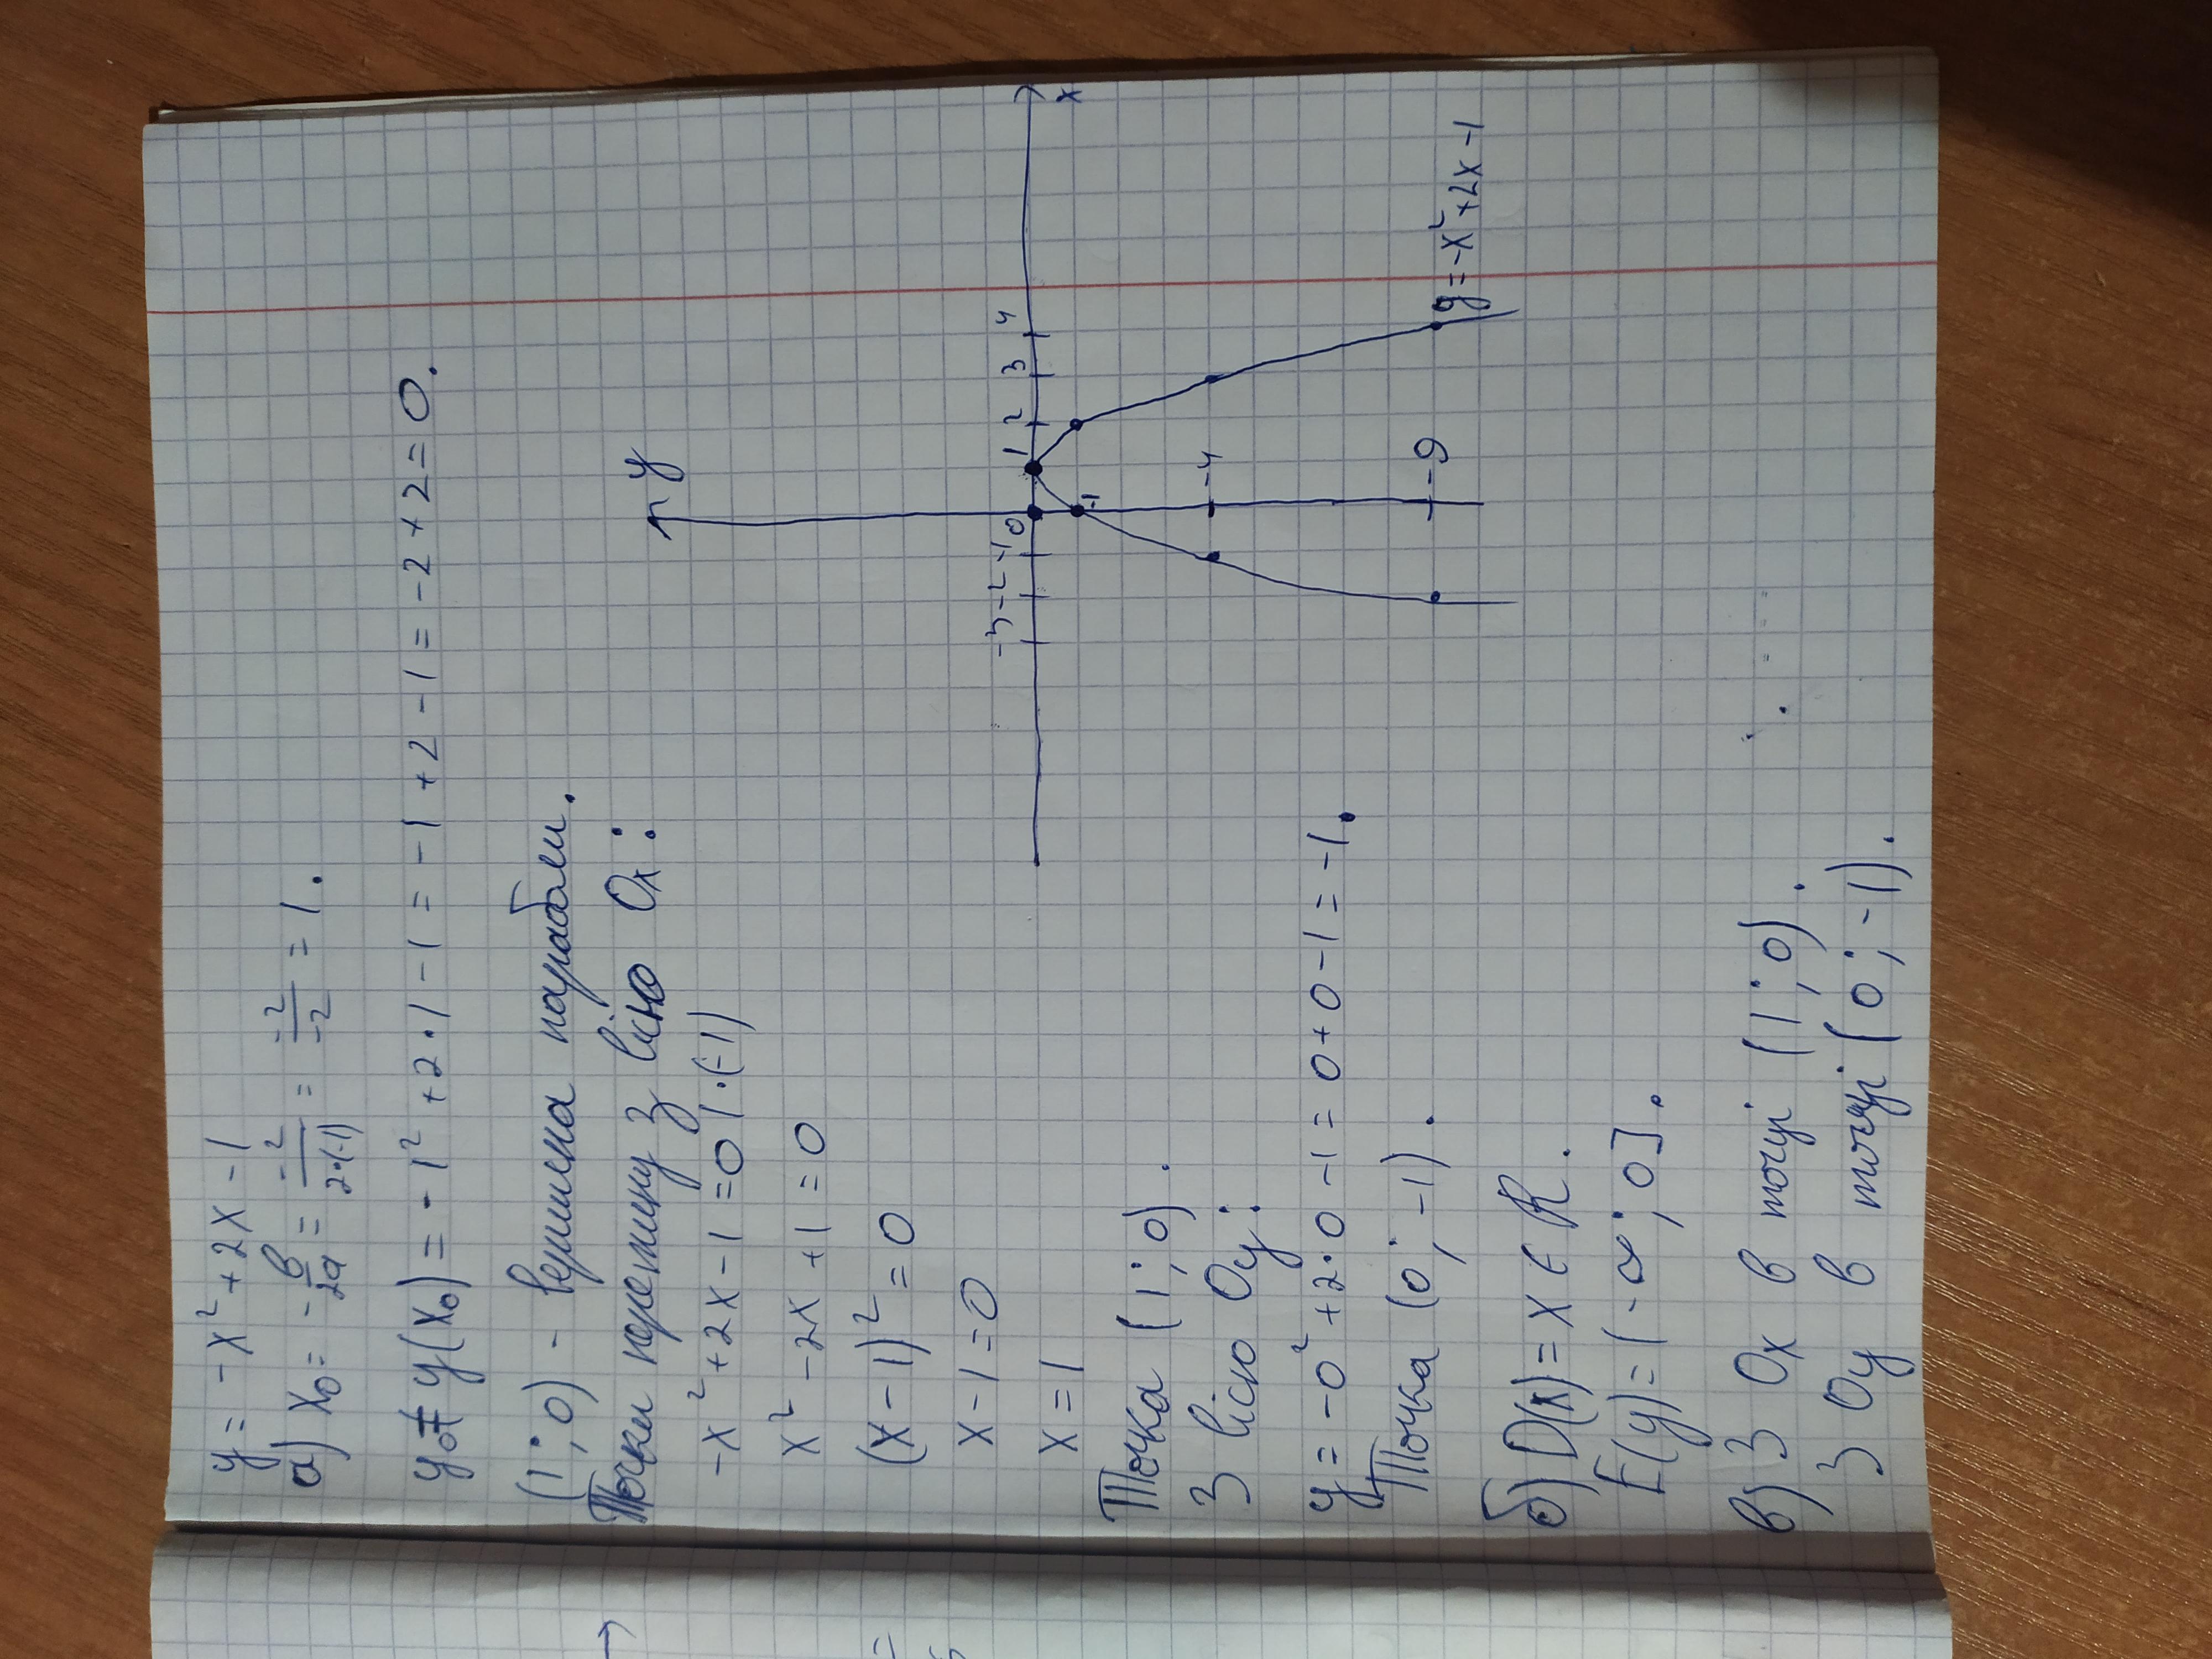 y = -x² + 2x - 1
а) x₀ = -в/2a = -2/2·(-1) = -2/-2 = 1.
y₀ = y(x₀) = -1² + 2·1 - 1 = -1 + 2 - 1 = -2 + 2 = 0.
(1; 0) - вершина параболи.
Точки перетину з вісю Ox:
-x² + 2x - 1 = 0 | ·(-1)
x² - 2x + 1 = 0
(x - 1)² = 0
x - 1 = 0
x = 1
Точка (1; 0).
З вісю Oy:
y = -0² + 2·0 - 1 = 0 + 0 - 1 = -1.
Точка (0; -1).
б) D(x) = x ∈ R.
E(y) = (-∞; 0].
в) З Ox в точці (1; 0).
З Oy в точці (0; -1).
y
-3 -2 -1 0 1 2 3 4
x
-1
-4
-9
y = -x² + 2x - 1